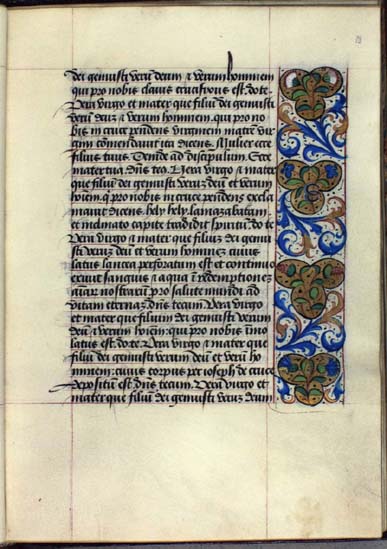 dei genuisti verū deum & verum hominem
qui pro nobis clavis crucifixus est. do. te.
Vera virgo et mater que filiū dei genuisti
verū deuz & verum hominem. qui pro no
bis in cruce pendens virginem matrē vir
gini cōmendavit ita dicens. Mulier ecce
filius tuus. Deinde ad discipulum. Ecce
mater tua. dn̄s tecū. Vera virgo & mater
que filiū dei genuisti veruz deū et verum
hoīem. q̄ pro nobis in cruce pendens excla
mavit dicens. hely hely. lamazabatani.
et inclinato capite tradidit spiritū. do. te
Vera virgo & mater que filiuz dei genui
sti veruz deū et verum hominez cuius
latus lancea perforatum est et continuo
exivit sanguis & aqua in redemptionez
aīarū nostrarū pro salute mundi ad
vitam eternaz. dn̄s tecum. Vera virgo
et mater que filium dei genuisti verum
deū & verum hoīem. qui pro nobis īmo
latus est. do. te. Vera virgo & mater que
filiū dei genuisti verum deū et verū ho
minem: cuius corpus per ioseph de cruce
depositū est. dn̄s tecum. Vera virgo et
mater que filiū dei genuisti veruz deum